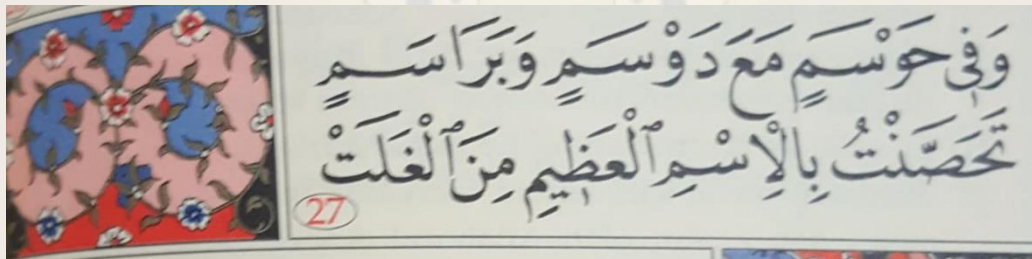 وَفِى حَوْسَمٍ مَعَ دَوْسَمٍ وَبَرَاسَمٍ
تَحَصَّنْتُ بِالْاِسْمِ ٱلْعَظِيمِ مِنَ ٱلْغَلَتْ
27